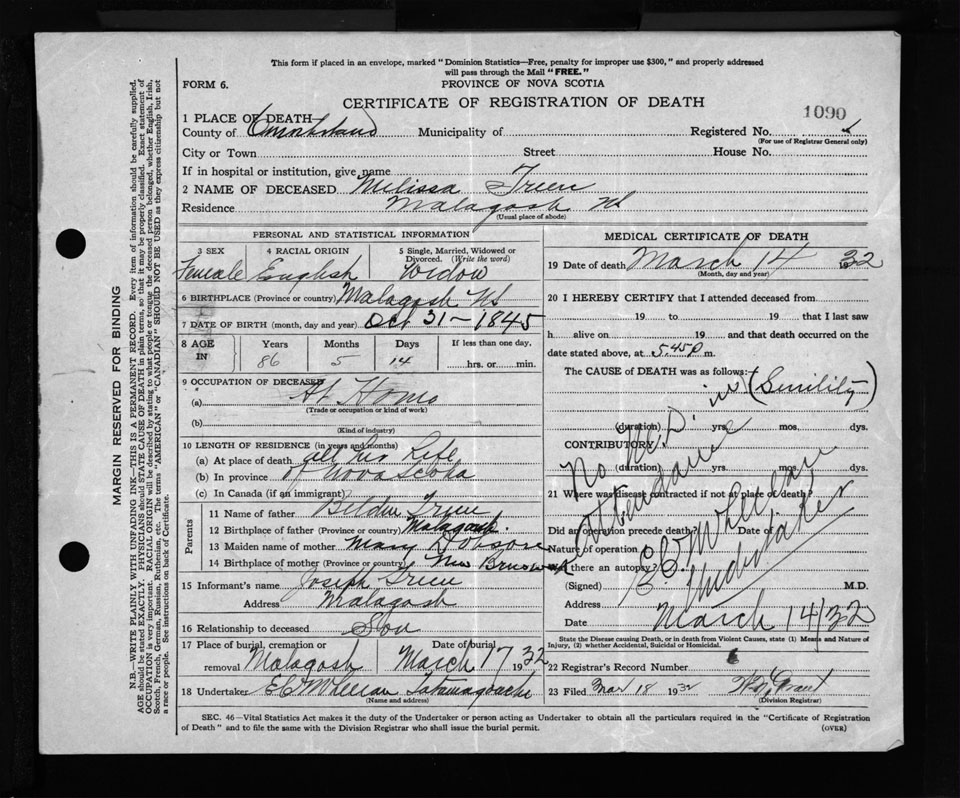 This form if placed in an envelope, marked "Dominion Statistics—Free, penalty for improper use $300," and properly addressed
will pass through the Mail "FREE."
FORM 6.
PROVINCE OF NOVA SCOTIA
CERTIFICATE OF REGISTRATION OF DEATH
1090
1 PLACE OF DEATH
County of Cumberland Municipality of Registered No.
(For use of Registrar General only)
City or Town Street House No.
If in hospital or institution, give name
2 NAME OF DECEASED Melissa Treen
Residence Malagash NS
(Usual place of abode)
PERSONAL AND STATISTICAL INFORMATION
3 SEX 4 RACIAL ORIGIN 5 Single, Married, Widowed or
Divorced. (Write the word)
Female English Widow
6 BIRTHPLACE (Province or country) Malagash NS
7 DATE OF BIRTH (month, day and year) Oct 31—1845
8 AGE IN Years Months Days If less than one day,
86 5 14 hrs. or min.
9 OCCUPATION OF DECEASED
(a) At Home
(Trade or occupation or kind of work)
(b)
(Kind of industry)
10 LENGTH OF RESIDENCE (in years and months)
(a) At place of death all his Life
(b) In province of Nova Scotia
(c) In Canada (if an immigrant)
Parents
11 Name of father Treen
12 Birthplace of father (Province or country) Malagash.
13 Maiden name of mother Mary Dobson
14 Birthplace of mother (Province or country) New Brunswick
15 Informant's name Joseph Treen
Address Malagash
16 Relationship to deceased Son
17 Place of burial, cremation or Date of burial
removal Malagash March 17 1932
18 Undertaker Tatamagouche
(Name and address)
MEDICAL CERTIFICATE OF DEATH
19 Date of death March 14 32
(Month, day and year)
20 I HEREBY CERTIFY that I attended deceased from
19 to 19 that I last saw
h alive on 19 and that death occurred on
date stated above, at 5.45 p m.
The CAUSE of DEATH was as follows:
(Senility)
(duration) yrs. mos. dys.
CONTRIBUTORY
(duration) yrs. mos. dys.
No M.D. in
attendance
21 Where was disease contracted if not at place of death?
Did an operation precede death? Date of
Nature of operation
Was there an autopsy?
(Signed) M.D.
Undertaker
Address
Date March 14/32
State the Disease causing Death, or in death from Violent Causes, state (1) Means and Nature of
Injury, (2) whether Accidental, Suicidal or Homicidal.
22 Registrar's Record Number 6
23 Filed Mar 18 1932 Grant
(Division Registrar)
SEC. 46—Vital Statistics Act makes it the duty of the Undertaker or person acting as Undertaker to obtain all the particulars required in the "Certificate of Registration
of Death" and to file the same with the Division Registrar who shall issue the burial permit.
(OVER)
MARGIN RESERVED FOR BINDING
N.B.—WRITE PLAINLY WITH UNFADING INK—THIS IS A PERMANENT RECORD. Every item of information should be carefully supplied.
AGE should be stated EXACTLY. PHYSICIANS should STATE CAUSE OF DEATH in plain terms, so that it may be properly classified. Exact statement of
OCCUPATION is very important. RACIAL ORIGIN will be described by stating to what people or tongue the deceased person belonged, whether English, Irish,
Scotch, French, German, Russian, Ruthenian, etc. The terms "AMERICAN" or "CANADIAN" SHOULD NOT BE USED as they express citizenship but not
a race or people. See instructions on back of Certificate.